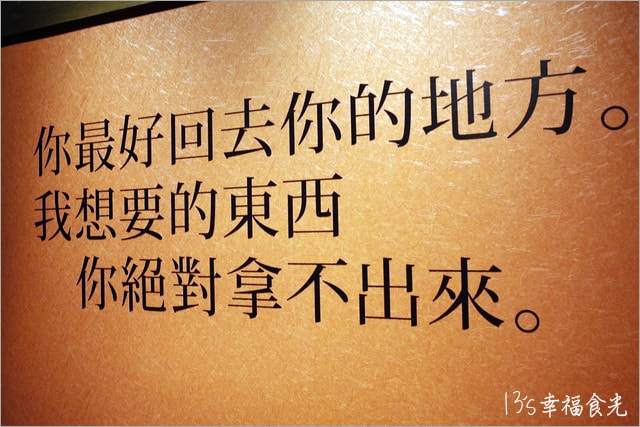 你最好回去你的地方。
我想要的東西
你絕對拿不出來。
13's幸福食光